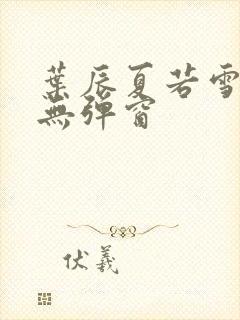 葉辰夏若雪
無彈窗
伏羲